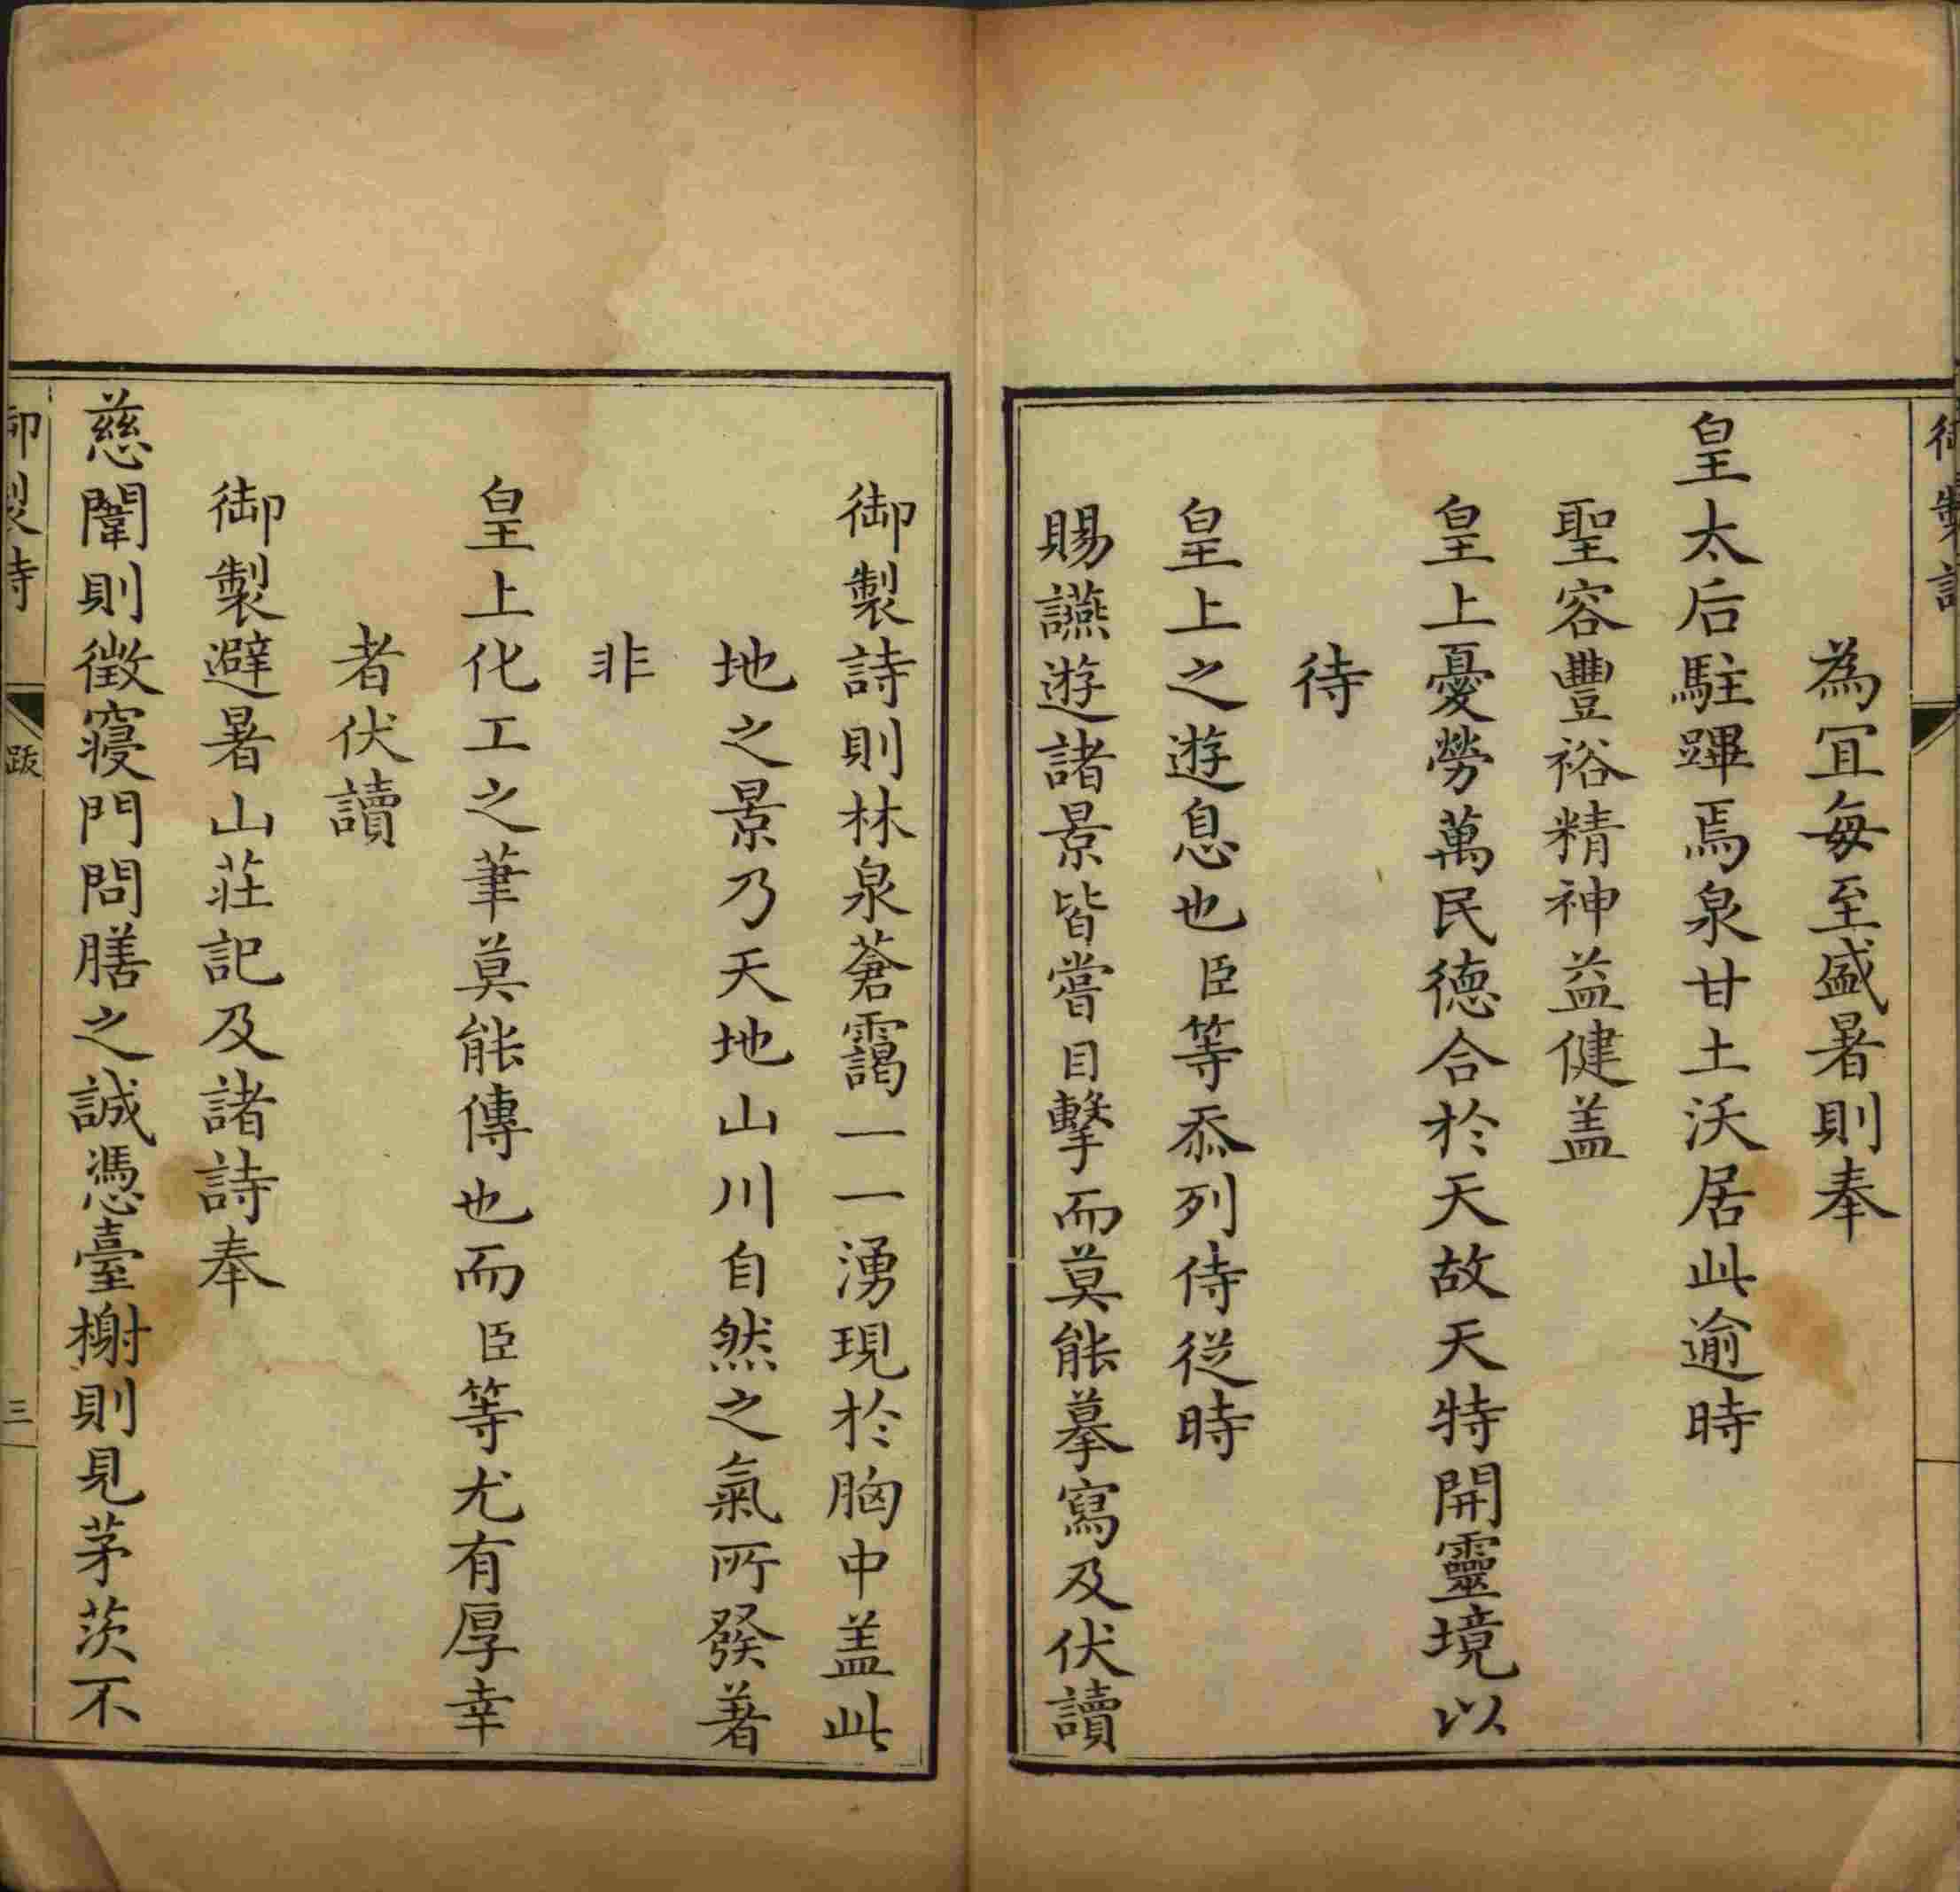 御製詩
為宜每至盛暑則奉
皇太后駐蹕焉泉甘土沃居此逾時
聖容豐裕精神益健盖
皇上憂勞萬民德合於天故天特開靈境以
待
皇上之遊息也臣等忝列侍從時
賜讌遊諸景皆嘗目擊而莫能摹寫及伏讀
御製詩則林泉蒼靄一一湧現於胸中盖此
地之景乃天地山川自然之氣所發著
非
皇上化工之筆莫能傳也而臣等尤有厚幸
者伏讀
御製避暑山莊記及諸詩奉
慈闈則徵寢門問膳之誠憑臺榭則見茅茨不
御製詩
跋
三